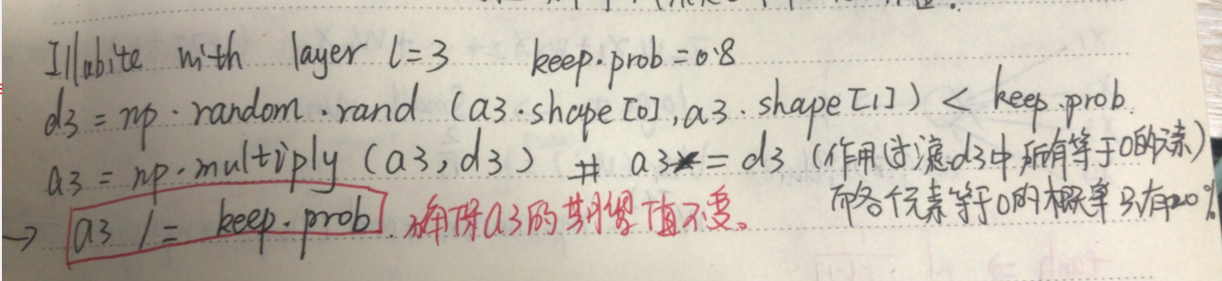 Illubite with layer l=3 keep.prob=0.8
d3 = np.random.rand (a3.shape[0], a3.shape[1]) < keep.prob.
a3 = np.multiply (a3, d3) # a3*= d3 (作用:过滤d3中所有等于0的元素)
而各个元素等于0的概率只有20%
→ a3 /= keep.prob. 确保a3的期望值不变。